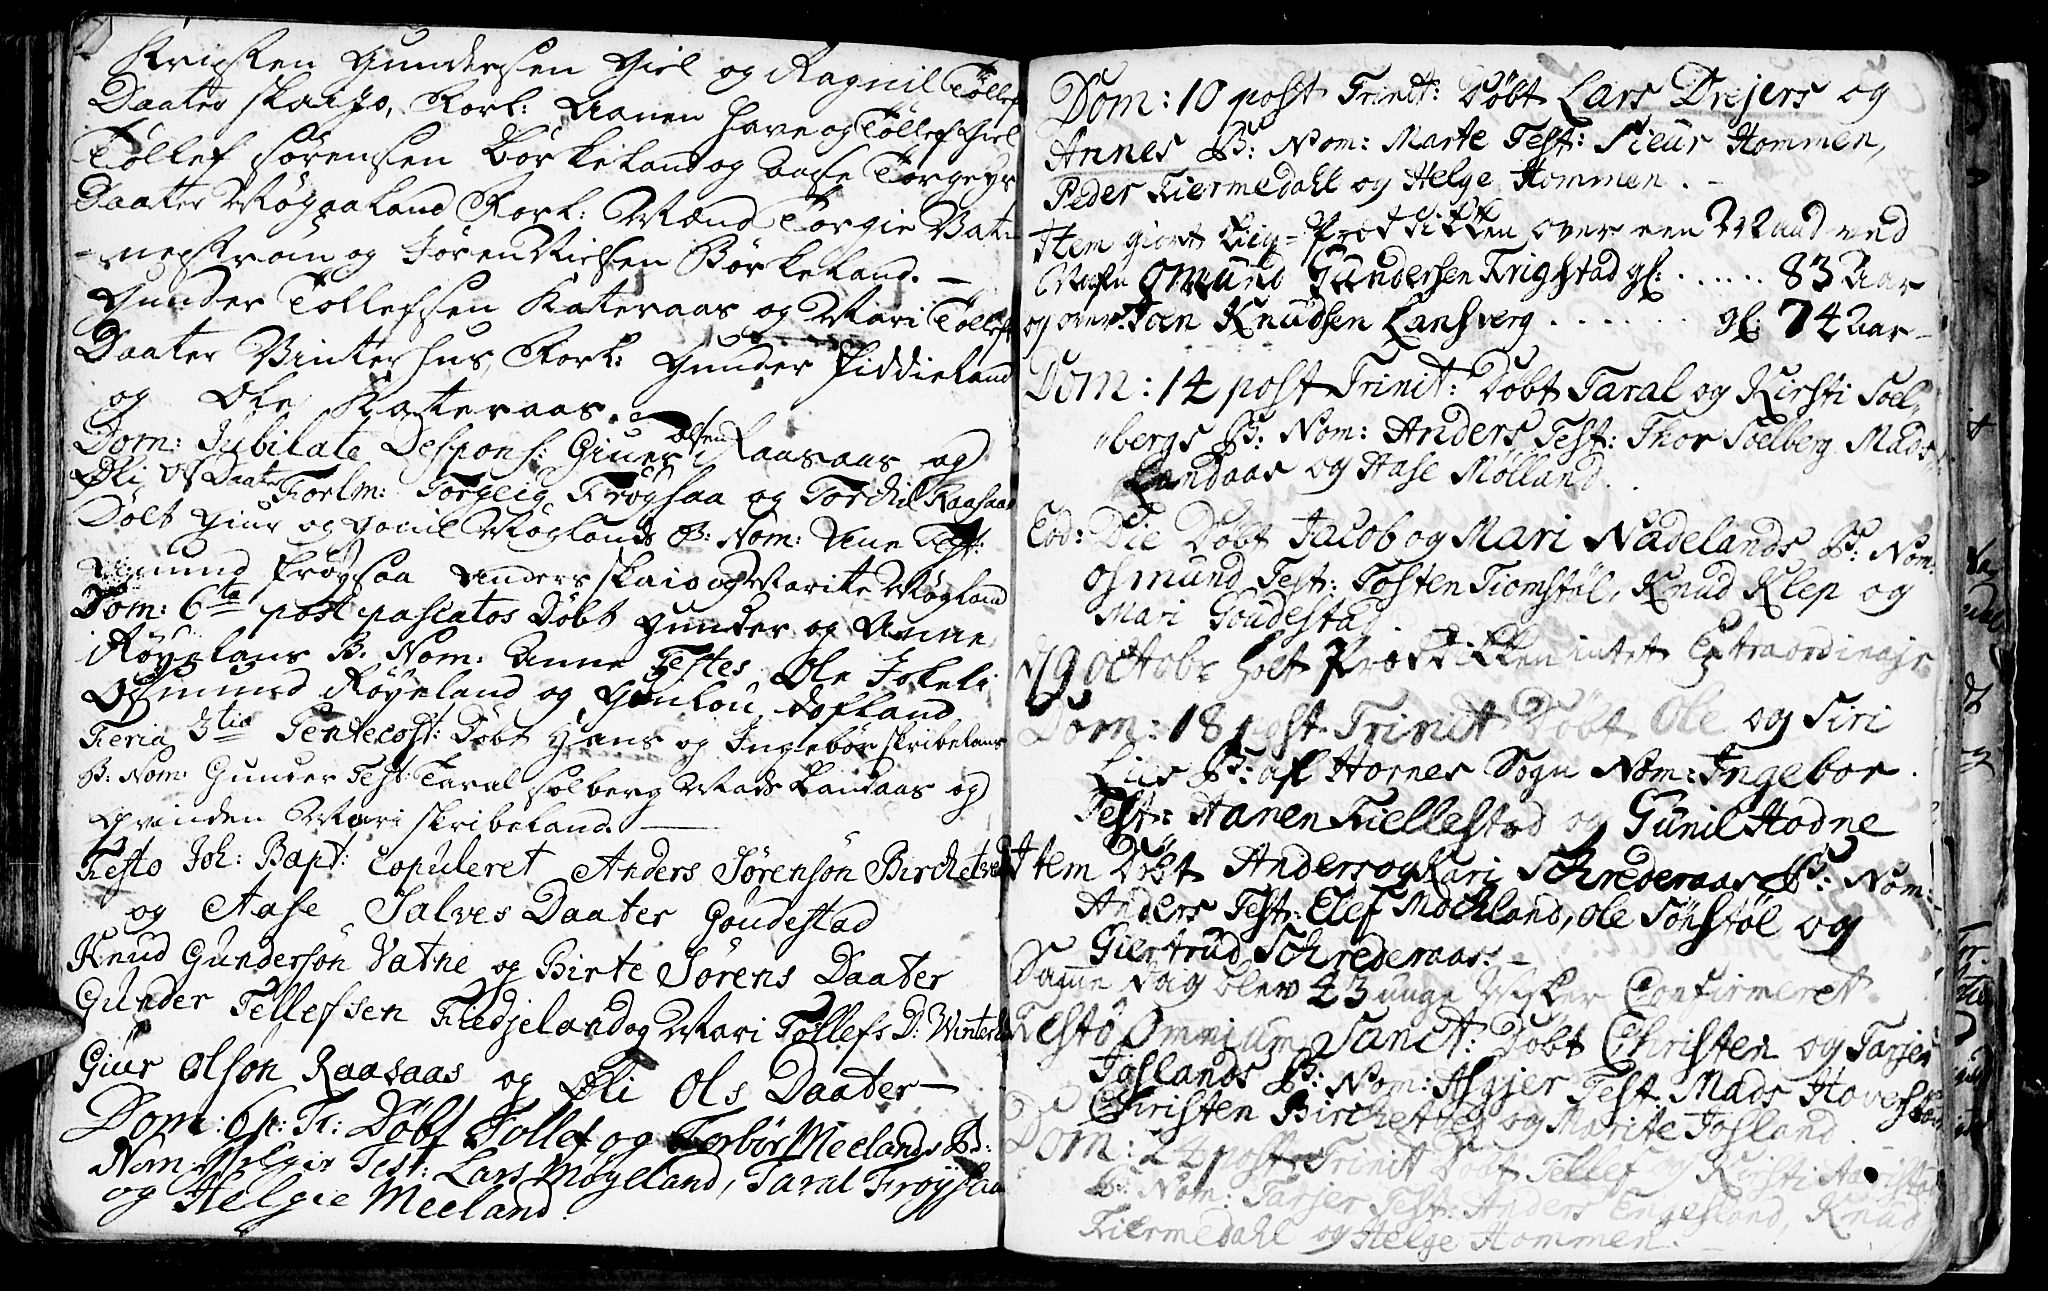 Kristen Gundersen Giel og Ragnil Tollef
Daater Skaizo, Forl: Aanen Have og Tollef Giel
Tollef Sørensen Børkeland og Aase Torgeys
Daater Møgaaland Forl: Mænd Torgie Vat
nestrøm og Søren Nielsen Børkeland. —
Gunder Tollefsen Kateraas og Mari Tollefs
Daater Vintershus, Forl: Gunder Fiddieland
og Ole Kateraas.
Dom: Jubilate Despons: Giuer Olsen Raasaas og
Øli Ols Daater Forlm: Torgeig Frøysaa og Torchil Raasaas
Døbt Giur og Gonil Møglands B: Nom: Ane Test:
Amund Frøysaa Anders Skaio og Marite Møgland
Dom: 6ta post pascatos Døbt Gunder og Anne
Røyelans B: Nom: Anne Testes Ole Iokeli
Osmund Røyeland og Gunlou Hofland
Feria 3tia Pentecost: Døbt Hans og Ingebor Skribelans
B: Nom: Gunder Test: Taral Solberg Mads Landaas og
Qvinden Mari Skribeland. —
Festo Joh: Bapt: Copuleret Anders Sørensøn Birchetved
og Aase Salves Daater Goudestad
Knud Gundersøn Vatne og Birte Sørens Daater
Gunder Tellefsen Fidjeland og Mari Tollefs D: Winterhus
Giur Olsøn Raasaas og Øli Ols Daater —
Dom: 6 p: Tr: Døbt Tollef og Torbør Meelands B:
Nom Helgie Test: Lars Møgeland, Taral Frøysaa
og Helgie Meeland.
Dom: 10 post Trinit: Døbt Lars Drejers og
Annes B: Nom: Marte Test: Sieur Hommen,
Peder Kiermedahl og Helge Hommen. —
Item giort Liig-Prædikken over een Mand ved
Nafn Omund Gundersen Frigstad gl: . . . . . 83 Aar
og over Joen Knudsen Lansverg . . . . . . gl: 74 Aar —
Dom: 14 post Trinit: Døbt Taral og Kirsti Soel
bergs B: Nom: Anders Test: Thor Soelberg Mads
Landaas og Aase Mølland.
Eod: Die Døbt Jacob og Mari Nadelands B: Nom:
Osmund Test: Tosten Tiomstøl, Knud Klep og
Mari Goudestad.
d 19 Octobr holt Prædikken intet Extraordinair
Dom: 18 post Trinit Døbt Ole og Siri
Lies B: af Hornes Sogn Nom: Ingebor.
Test: Aanen Kiellestad og Gunil Hodne
Item Døbt Anders og Kari Schrederaas B: Nom:
Anders Test: Elef Mochland, Ole Sønstøl og
Giertrud Schrederaas. —
Samme Dag blev 43 unge Visker Confirmeret
Festo Omnium Sanct: Døbt Christen og Tarjer
Foslands B: Nom: Asgjer Test Mads Hoveshøn
Christen Birchetved og Marite Fosland.
Dom: 24 post Trinit Døbt Tellef Kirsti Aaristad
B: Nom: Tarjer Test: Anders Engesland, Knud
Kiermedahl og Helge Hommen. —